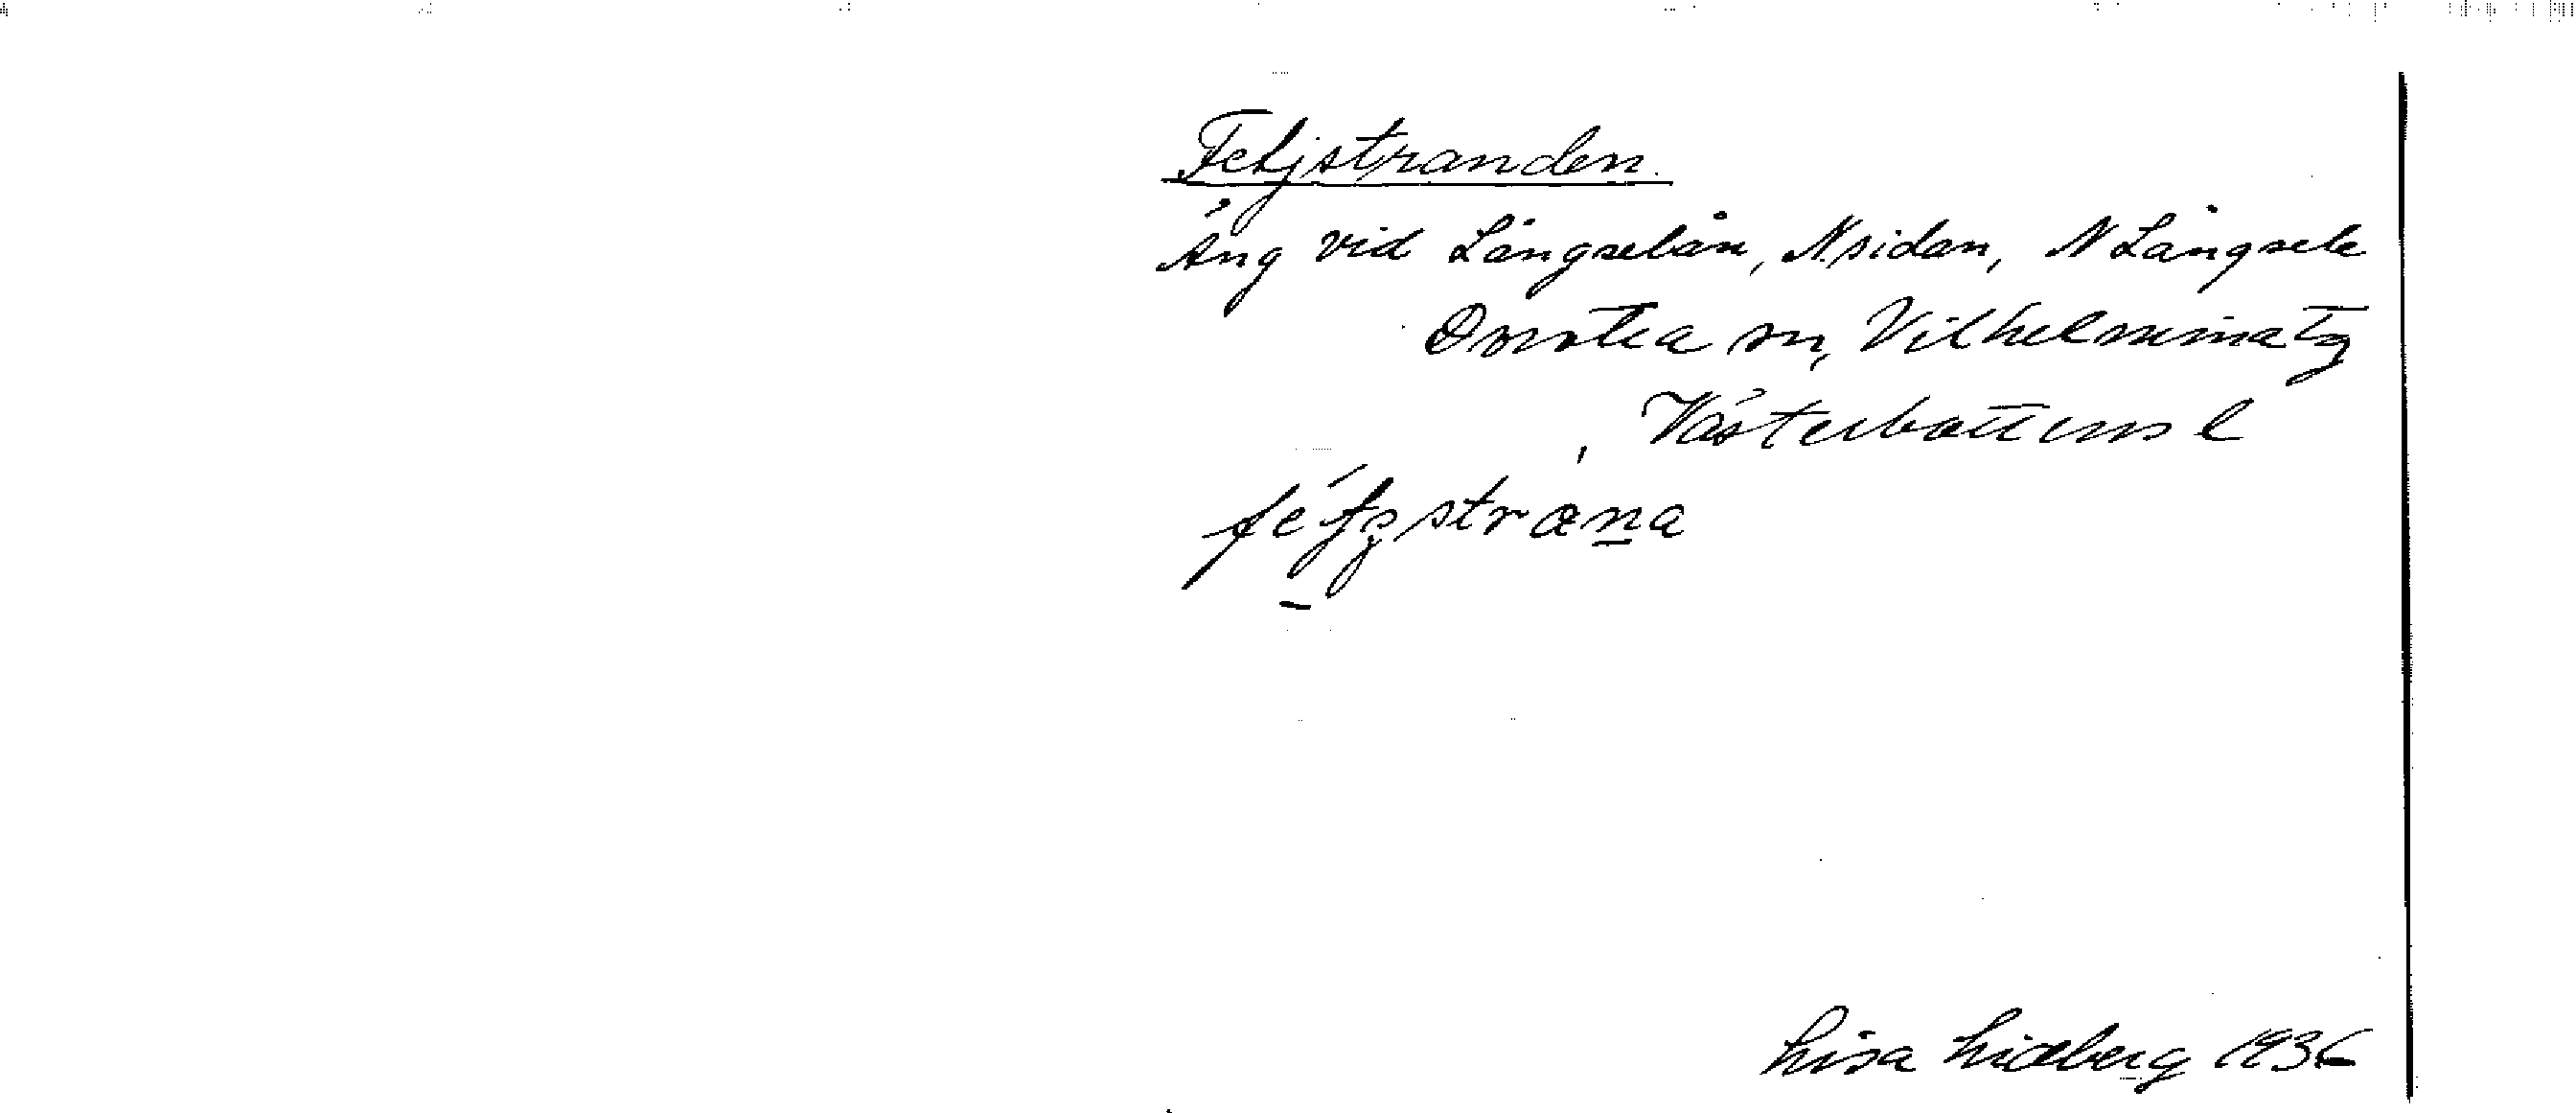 Feljstranden.
Äng vid Långselån, N.sidan, N Långsele
Dorotea sn, Vilhelmina tg
Västerbottens l
Lisa Lidberg 1936